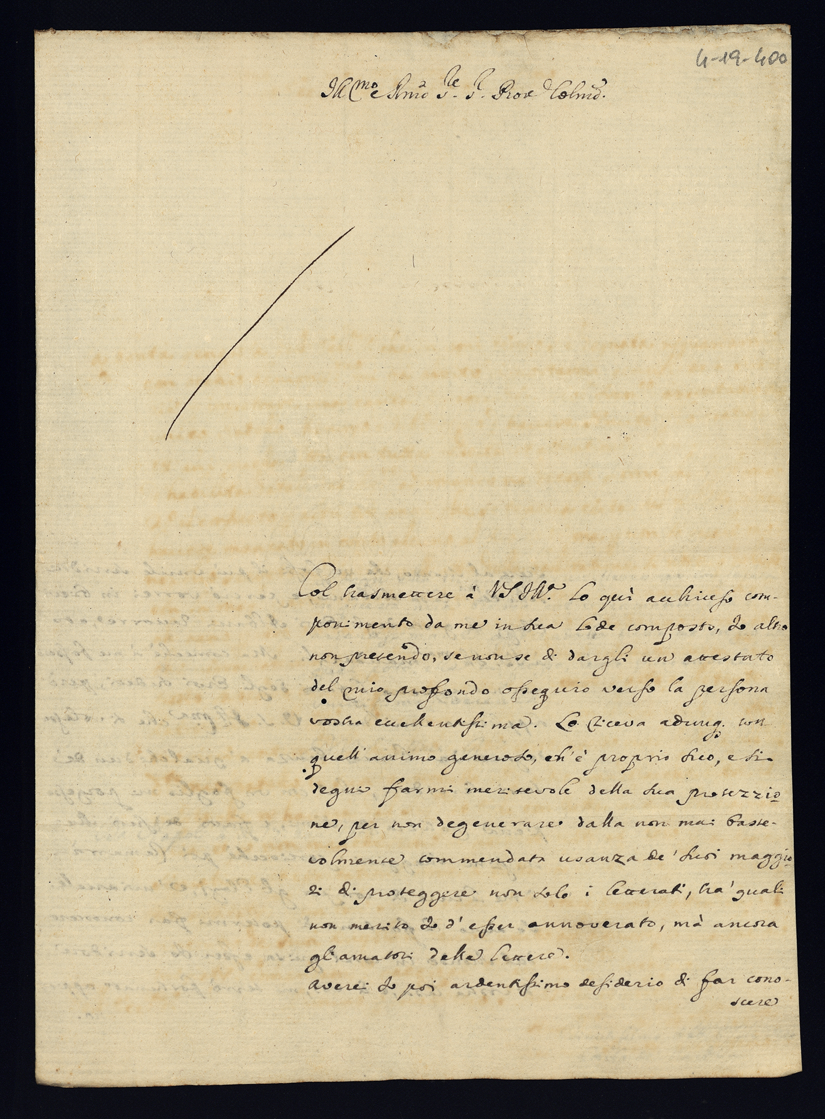 4-19-400
Ill.mo e Rmo Sre Sr. Prone Colmo.
Col trasmettere à VS Ill.a lo qui acchiuso com-
ponimento da me in sua lode composto, Io altro
non pretendo, se non se di dargli un attestato
del mio profondo ossequio verso la persona
vostra eccellentissima. Lo riceva adunq. con
quell'animo generoso, ch'è proprio suo, e si
degni farmi meritevole della sua protezzio
ne, per non degenerare dalla non mai baste-
volmente commendata usanza de' suoi maggio
ri di proteggere non solo i letterati, tra' quali
non merito Io d'esser annoverato, mà ancora
gli amatori delle lettere.
Averei Io poi ardentissimo desiderio di far cono-
scere